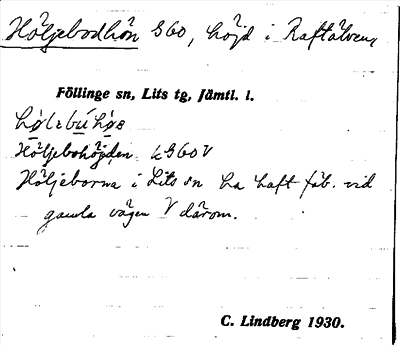 Höljebodhön SGO, höjd i Raftälven,
Föllinge sn, Lits tg, Jämtl. l.
Höljebohöjden kSGOV
Höljeborna i Lits sn ha haft fäb. vid
gamla vägen V därom.
C. Lindberg 1930.